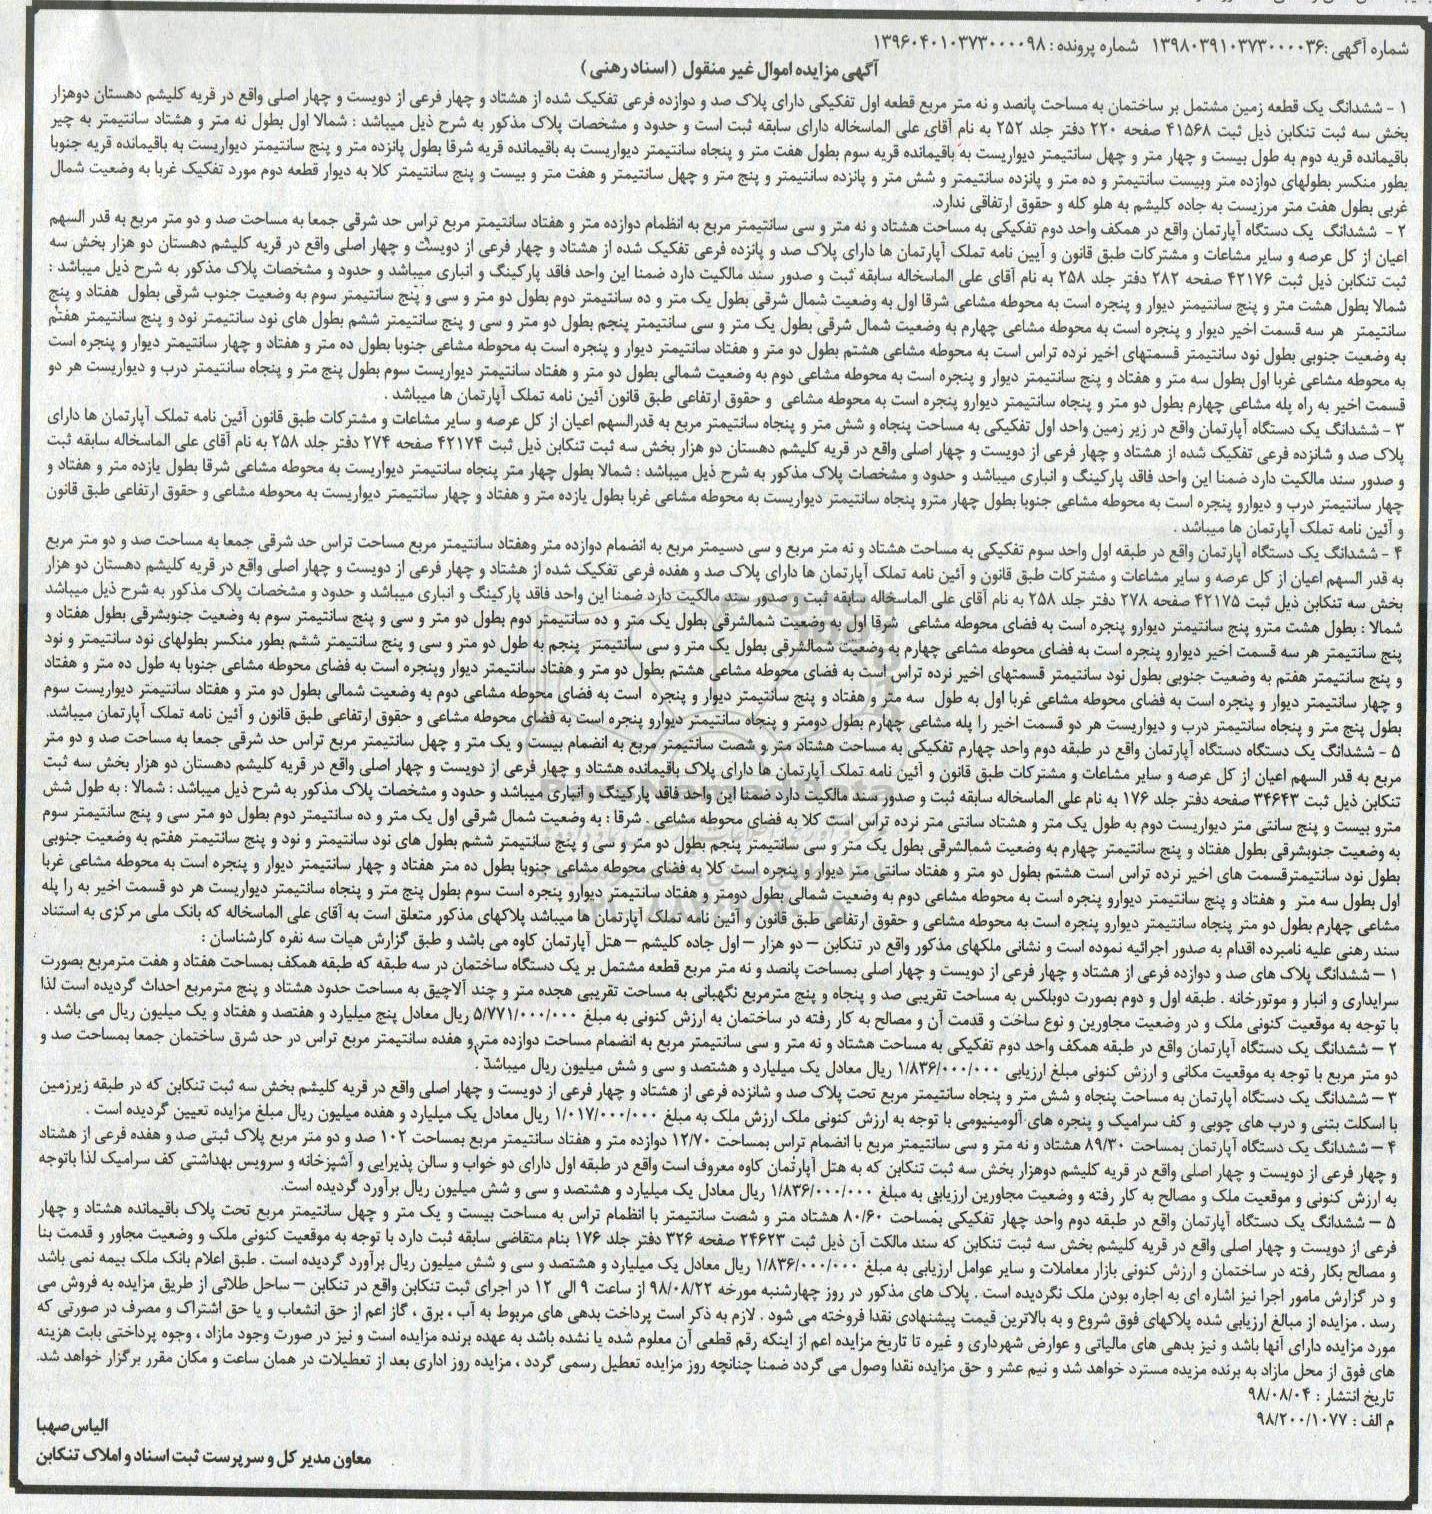 شماره آگهی :۱۳۹۸۰۳۹۱۰۳۷۳۰۰۰۰۳۶ شماره پرونده : ۱۳۹۶۰۴۰۱۰۳۷۳۰۰۰۰۹۸
آگهی مزایده اموال غیر منقول (اسناد رهنی)
۱ - ششدانگ یک قطعه زمین مشتمل بر ساختمان به مساحت پانصد و نه متر مربع قطعه اول تفکیکی دارای پلاک صد و دوازده فرعی تفکیک شده از هشتاد و چهار فرعی از دویست و چهار اصلی واقع در قریه کلیشم دهستان دوهزار
بخش سه ثبت تنکابن ذیل ثبت ۴۱۵۶۸ صفحه ۲۲۰ دفتر جلد ۲۵۲ به نام آقای علی الماسخاله دارای سابقه ثبت است و حدود و مشخصات پلاک مذکور به شرح ذیل میباشد : شمالا اول بطول نه متر و هشتاد سانتیمتر به چپر
باقیمانده قریه دوم به طول بیست و چهار متر و چهل سانتیمتر دیواریست به باقیمانده قریه سوم بطول هفت متر و پنجاه سانتیمتر دیواریست به باقیمانده قریه شرقا بطول پانزده متر و پنج سانتیمتر دیواریست به باقیمانده قریه جنوبا
بطور منکسر بطولهای دوازده متر وبیست سانتیمتر و ده متر و پانزده سانتیمتر و شش متر و پانزده سانتیمتر و پنج متر و چهل سانتیمتر و هفت متر و بیست و پنج سانتیمتر کلا به دیوار قطعه دوم مورد تفکیک غربا به وضعیت شمال
غربی بطول هفت متر مرزیست به جاده کلیشم به هلو کله و حقوق ارتفاقی ندارد.
۲ - ششدانگ یک دستگاه آپارتمان واقع در همکف واحد دوم تفکیکی به مساحت هشتاد و نه متر و سی سانتیمتر مربع به انظمام دوازده متر و هفتاد سانتیمتر مربع تراس حد شرقی جمعا به مساحت صد و دو متر مربع به قدر السهم
اعیان از کل عرصه و سایر مشاعات و مشترکات طبق قانون و آیین نامه تملک آپارتمان ها دارای پلاک صد و پانزده فرعی تفکیک شده از هشتاد و چهار فرعی از دویست و چهار اصلی واقع در قریه کلیشم دهستان دو هزار بخش سه
ثبت تنکابن ذیل ثبت ۴۲۱۷۶ صفحه ۲۸۲ دفتر جلد ۲۵۸ به نام آقای علی الماسخاله سابقه ثبت و صدور سند مالکیت دارد ضمنا این واحد فاقد پارکینگ و انباری میباشد و حدود و مشخصات پلاک مذکور به شرح ذیل میباشد :
شمالا بطول هشت متر و پنج سانتیمتر دیوار و پنجره است به محوطه مشاعی شرقا اول به وضعیت شمال شرقی بطول یک متر و ده سانتیمتر دوم بطول دو متر و سی و پنج سانتیمتر سوم به وضعیت جنوب شرقی بطول هفتاد و پنج
سانتیمتر هر سه قسمت اخیر دیوار و پنجره است به محوطه مشاعی چهارم به وضعیت شمال شرقی بطول یک متر و سی سانتیمتر پنجم بطول دو متر و سی و پنج سانتیمتر ششم بطول های نود سانتیمتر نود و پنج سانتیمتر هفتم
به وضعیت جنوبی بطول نود سانتیمتر قسمتهای اخیر نرده تراس است به محوطه مشاعی هشتم بطول دو متر و هفتاد سانتیمتر دیوار و پنجره است به محوطه مشاعی جنوبا بطول ده متر و هفتاد و چهار سانتیمتر دیوار و پنجره است
به محوطه مشاعی غربا اول بطول سه متر و هفتاد و پنج سانتیمتر دیوار و پنجره است به محوطه مشاعی دوم به وضعیت شمالی بطول دو متر و هفتاد سانتیمتر دیواریست سوم بطول پنج متر و پنجاه سانتیمتر درب و دیواریست هر دو
قسمت اخیر به راه پله مشاعی چهارم بطول دو متر و پنجاه سانتیمتر دیوارو پنجره است به محوطه مشاعی و حقوق ارتفاعی طبق قانون آئین نامه تملک آپارتمان ها میباشد .
۳ - ششدانگ یک دستگاه آپارتمان واقع در زیر زمین واحد اول تفکیکی به مساحت پنجاه و شش متر و پنجاه سانتیمتر مربع به قدرالسهم اعیان از کل عرصه و سایر مشاعات و مشترکات طبق قانون آئین نامه تملک آپارتمان ها دارای
پلاک صد و شانزده فرعی تفکیک شده از هشتاد و چهار فرعی از دویست و چهار اصلی واقع در قریه کلیشم دهستان دو هزار بخش سه ثبت تنکابن ذیل ثبت ۴۲۱۷۴ صفحه ۲۷۴ دفتر جلد ۲۵۸ به نام آقای علی الماسخاله سابقه ثبت
و صدور سند مالکیت دارد ضمنا این واحد فاقد پارکینگ و انباری میباشد و حدود و مشخصات پلاک مذکور به شرح ذیل میباشد : شمالا بطول چهار متر پنجاه سانتیمتر دیواریست به محوطه مشاعی شرقا بطول یازده متر و هفتاد و
چهار سانتیمتر درب و دیوارو پنجره است به محوطه مشاعی جنوبا بطول چهار مترو پنجاه سانتیمتر دیواریست به محوطه مشاعی غربا بطول یازده متر و هفتاد و چهار سانتیمتر دیواریست به محوطه مشاعی و حقوق ارتفاعی طبق قانون
و آئین نامه تملک آپارتمان ها میباشد .
۴ - ششدانگ یک دستگاه آپارتمان واقع در طبقه اول واحد سوم تفکیکی به مساحت هشتاد و نه متر مربع و سی دسیمتر مربع به انضمام دوازده متر وهفتاد سانتیمتر مربع مساحت تراس حد شرقی جمعا به مساحت صد و دو متر مربع
به قدر السهم اعیان از کل عرصه و سایر مشاعات و مشترکات طبق قانون و آئین نامه تملک آپارتمان ها دارای پلاک صد و هفده فرعی تفکیک شده از هشتاد و چهار فرعی از دویست و چهار اصلی واقع در قریه کلیشم دهستان دو هزار
بخش سه تنکابن ذیل ثبت ۴۲۱۷۵ صفحه ۲۷۸ دفتر جلد ۲۵۸ به نام آقای علی الماسخاله سابقه ثبت و صدور سند مالکیت دارد ضمنا این واحد فاقد پارکینگ و انباری میباشد و حدود و مشخصات پلاک مذکور به شرح ذیل میباشد
شمالا : بطول هشت مترو پنج سانتیمتر دیوارو پنجره است به فضای محوطه مشاعی شرقا اول به وضعیت شمالشرقی بطول یک متر و ده سانتیمتر دوم بطول دو متر و سی و پنج سانتیمتر سوم به وضعیت جنوبشرقی بطول هفتاد و
پنج سانتیمتر هر سه قسمت اخیر دیوارو پنجره است به فضای محوطه مشاعی چهارم به وضعیت شمالشرقی بطول یک متر و سی سانتیمتر پنجم به طول دو متر و سی و پنج سانتیمتر ششم بطور منکسر بطولهای نود سانتیمتر و نود
و پنج سانتیمتر هفتم به وضعیت جنوبی بطول نود سانتیمتر قسمتهای اخیر نرده تراس است به فضای محوطه مشاعی هشتم بطول دو متر و هفتاد سانتیمتر دیوار وپنجره است به فضای محوطه مشاعی جنوبا به طول ده متر و هفتاد
و چهار سانتیمتر دیوار و پنجره است به فضای محوطه مشاعی غربا اول به طول سه متر و هفتاد و پنج سانتیمتر دیوار و پنجره است به فضای محوطه مشاعی دوم به وضعیت شمالی بطول دو متر و هفتاد سانتیمتر دیواریست سوم
بطول پنج متر و پنجاه سانتیمتر درب و دیواریست هر دو قسمت اخیر را پله مشاعی چهارم بطول دومتر و پنجاه سانتیمتر دیوارو پنجره است به فضای محوطه مشاعی و حقوق ارتفاعی طبق قانون و آئین نامه تملک آپارتمان میباشد.
۵ - ششدانگ یک دستگاه دستگاه آپارتمان واقع در طبقه دوم واحد چهارم تفکیکی به مساحت هشتاد متر و شصت سانتیمتر مربع به انضمام بیست و یک متر و چهل سانتیمتر مربع تراس حد شرقی جمعا به مساحت صد و دو متر
مربع به قدر السهم اعیان از کل عرصه و سایر مشاعات و مشترکات طبق قانون و آئین نامه تملک آپارتمان ها دارای پلاک باقیمانده هشتاد و چهار فرعی از دویست و چهار اصلی واقع در قریه کلیشم دهستان دو هزار بخش سه ثبت
تنکابن ذیل ثبت ۳۴۶۴۳ صفحه دفتر جلد ۱۷۶ به نام علی الماسخاله سابقه ثبت و صدور سند مالکیت دارد ضمنا این واحد فاقد پارکینگ و انباری میباشد و حدود و مشخصات پلاک مذکور به شرح ذیل میباشد : شمالا : به طول شش
مترو بیست و پنج سانتی متر دیواریست دوم به طول یک متر و هشتاد سانتی متر نرده تراس است کلا به فضای محوطه مشاعی . شرقا : به وضعیت شمال شرقی اول یک متر و ده سانتیمتر دوم بطول دو متر سی و پنج سانتیمتر سوم
به وضعیت جنوبشرقی بطول هفتاد و پنج سانتیمتر چهارم به وضعیت شمالشرقی بطول یک متر و سی سانتیمتر پنجم بطول دو متر و سی و پنج سانتیمتر ششم بطول های نود سانتیمتر و نود و پنج سانتیمتر هفتم به وضعیت جنوبی
بطول نود سانتیمترقسمت های اخیر نرده تراس است هشتم بطول دو متر و هفتاد سانتی متر دیوار و پنجره است کلا به فضای محوطه مشاعی جنوبا بطول ده متر هفتاد و چهار سانتیمتر دیوار و پنجره است به محوطه مشاعی غربا
اول بطول سه متر و هفتاد و پنج سانتیمتر دیوارو پنجره است به محوطه مشاعی دوم به وضعیت شمالی بطول دومتر و هفتاد سانتیمتر دیوارو پنجره است سوم بطول پنج متر و پنجاه سانتیمتر دیواریست هر دو قسمت اخیر به را پله
مشاعی چهارم بطول دو متر پنجاه سانتیمتر دیوارو پنجره است به محوطه مشاعی و حقوق ارتفاعی طبق قانون و آئین نامه تملک آپارتمان ها میباشد پلاکهای مذکور متعلق است به آقای علی الماسخاله که بانک ملی مرکزی به استناد
سند رهنی علیه نامبرده اقدام به صدور اجرائیه نموده است و نشانی ملکهای مذکور واقع در تنکابن – دو هزار – اول جاده کلیشم – هتل آپارتمان کاوه می باشد و طبق گزارش هیات سه نفره کارشناسان :
۱ – ششدانگ پلاک های صد و دوازده فرعی از هشتاد و چهار فرعی از دویست و چهار اصلی بمساحت پانصد و نه متر مربع قطعه مشتمل بر یک دستگاه ساختمان در سه طبقه که طبقه همکف بمساحت هفتاد و هفت مترمربع بصورت
سرایداری و انبار و موتورخانه . طبقه اول و دوم بصورت دوبلکس به مساحت تقریبی صد و پنجاه و پنج مترمربع نگهبانی به مساحت تقریبی هجده متر و چند آلاچیق به مساحت حدود هشتاد و پنج مترمربع احداث گردیده است لذا
با توجه به موقعیت کنونی ملک و در وضعیت مجاورین و نوع ساخت و قدمت آن و مصالح به کار رفته در ساختمان به ارزش کنونی به مبلغ ۵/۷۷۱/۰۰۰/۰۰۰ ریال معادل پنج میلیارد و هفتصد و هفتاد و یک میلیون ریال می باشد .
۲ – ششدانگ یک دستگاه آپارتمان واقع در طبقه همکف واحد دوم تفکیکی به مساحت هشتاد و نه متر و سی سانتیمتر مربع به انضمام مساحت دوازده متر و هفده سانتیمتر مربع تراس در حد شرق ساختمان جمعا بمساحت صد و
دو متر مربع با توجه به موقعیت مکانی و ارزش کنونی مبلغ ارزیابی ۱/۸۳۶/۰۰۰/۰۰۰ ریال معادل یک میلیارد و هشتصد و سی و شش میلیون ریال میباشد .
۳ – ششدانگ یک دستگاه آپارتمان به مساحت پنجاه و شش متر و پنجاه سانتیمتر مربع تحت پلاک صد و شانزده فرعی از هشتاد و چهار فرعی از دویست و چهار اصلی واقع در قریه کلیشم بخش سه ثبت تنکابن که در طبقه زیرزمین
با اسکلت بتنی و درب های چوبی و کف سرامیک و پنجره های آلومینیومی با توجه به ارزش کنونی ملک ارزش ملک به مبلغ ۱/۰۱۷/۰۰۰/۰۰۰ ریال معادل یک میلیارد و هفده میلیون ریال مبلغ مزایده تعیین گردیده است .
۴ – ششدانگ یک دستگاه آپارتمان بمساحت ۸۹/۳۰ هشتاد و نه متر و سی سانتیمتر مربع با انضمام تراس بمساحت ۱۲/۷۰ دوازده متر و هفتاد سانتیمتر مربع بمساحت ۱۰۲ صد و دو متر مربع پلاک ثبتی صد و هفده فرعی از هشتاد
و چهار فرعی از دویست و چهار اصلی واقع در قریه کلیشم دوهزار بخش سه ثبت تنکابن که به هتل آپارتمان کاوه معروف است واقع در طبقه اول دارای دو خواب و سالن پذیرایی و آشپزخانه و سرویس بهداشتی کف سرامیک لذا باتوجه
به ارزش کنونی و موقعیت ملک و مصالح به کار رفته و وضعیت مجاورین ارزیابی به مبلغ ۱/۸۳۶/۰۰۰/۰۰۰ ریال معادل یک میلیارد و هشتصد و سی و شش میلیون ریال برآورد گردیده است.
۵ – ششدانگ یک دستگاه آپارتمان واقع در طبقه دوم واحد چهار تفکیکی بمساحت ۸۰/۶۰ هشتاد متر و شصت سانتیمتر با انظمام تراس به مساحت بیست و یک متر و چهل سانتیمتر مربع تحت پلاک باقیمانده هشتاد و چهار
فرعی از دویست و چهار اصلی واقع در قریه کلیشم بخش سه ثبت تنکابن که سند مالکت آن ذیل ثبت ۲۴۶۲۳ صفحه ۳۲۶ دفتر جلد ۱۷۶ بنام متقاضی سابقه ثبت دارد با توجه به موقعیت کنونی ملک و وضعیت مجاور و قدمت بنا
و مصالح بکار رفته در ساختمان و ارزش کنونی بازار معاملات و سایر عوامل ارزیابی به مبلغ ۱/۸۳۶/۰۰۰/۰۰۰ ریال معادل یک میلیارد و هشتصد و سی و شش میلیون ریال برآورد گردیده است . طبق اعلام بانک ملک بیمه نمی باشد
و در گزارش مامور اجرا نیز اشاره ای به اجاره بودن ملک نگردیده است . پلاک های مذکور در روز چهارشنبه مورخه ۹۸/۰۸/۲۲ از ساعت ۹ الی ۱۲ در اجرای ثبت تنکابن واقع در تنکابن – ساحل طلائی از طریق مزایده به فروش می
رسد . مزایده از مبالغ ارزیابی شده پلاکهای فوق شروع و به بالاترین قیمت پیشنهادی نقدا فروخته می شود . لازم به ذکر است پرداخت بدهی های مربوط به آب ، برق ، گاز اعم از حق انشعاب و یا حق اشتراک و مصرف در صورتی که
مورد مزایده دارای آنها باشد و نیز بدهی های مالیاتی و عوارض شهرداری و غیره تا تاریخ مزایده اعم از اینکه رقم قطعی آن معلوم شده یا نشده باشد به عهده برنده مزایده است و نیز در صورت وجود مازاد ، وجوه پرداختی بابت هزینه
های فوق از محل مازاد به برنده مزیده مسترد خواهد شد و نیم عشر و حق مزایده نقدا وصول می گردد ضمنا چنانچه روز مزایده تعطیل رسمی گردد ، مزایده روز اداری بعد از تعطیلات در همان ساعت و مکان مقرر برگزار خواهد شد.
تاریخ انتشار : ۹۸/۰۸/۰۴
م الف : ۹۸/۲۰۰/۱۰۷۷
الیاس صهبا
معاون مدیر کل و سرپرست ثبت اسناد و املاک تنکابن